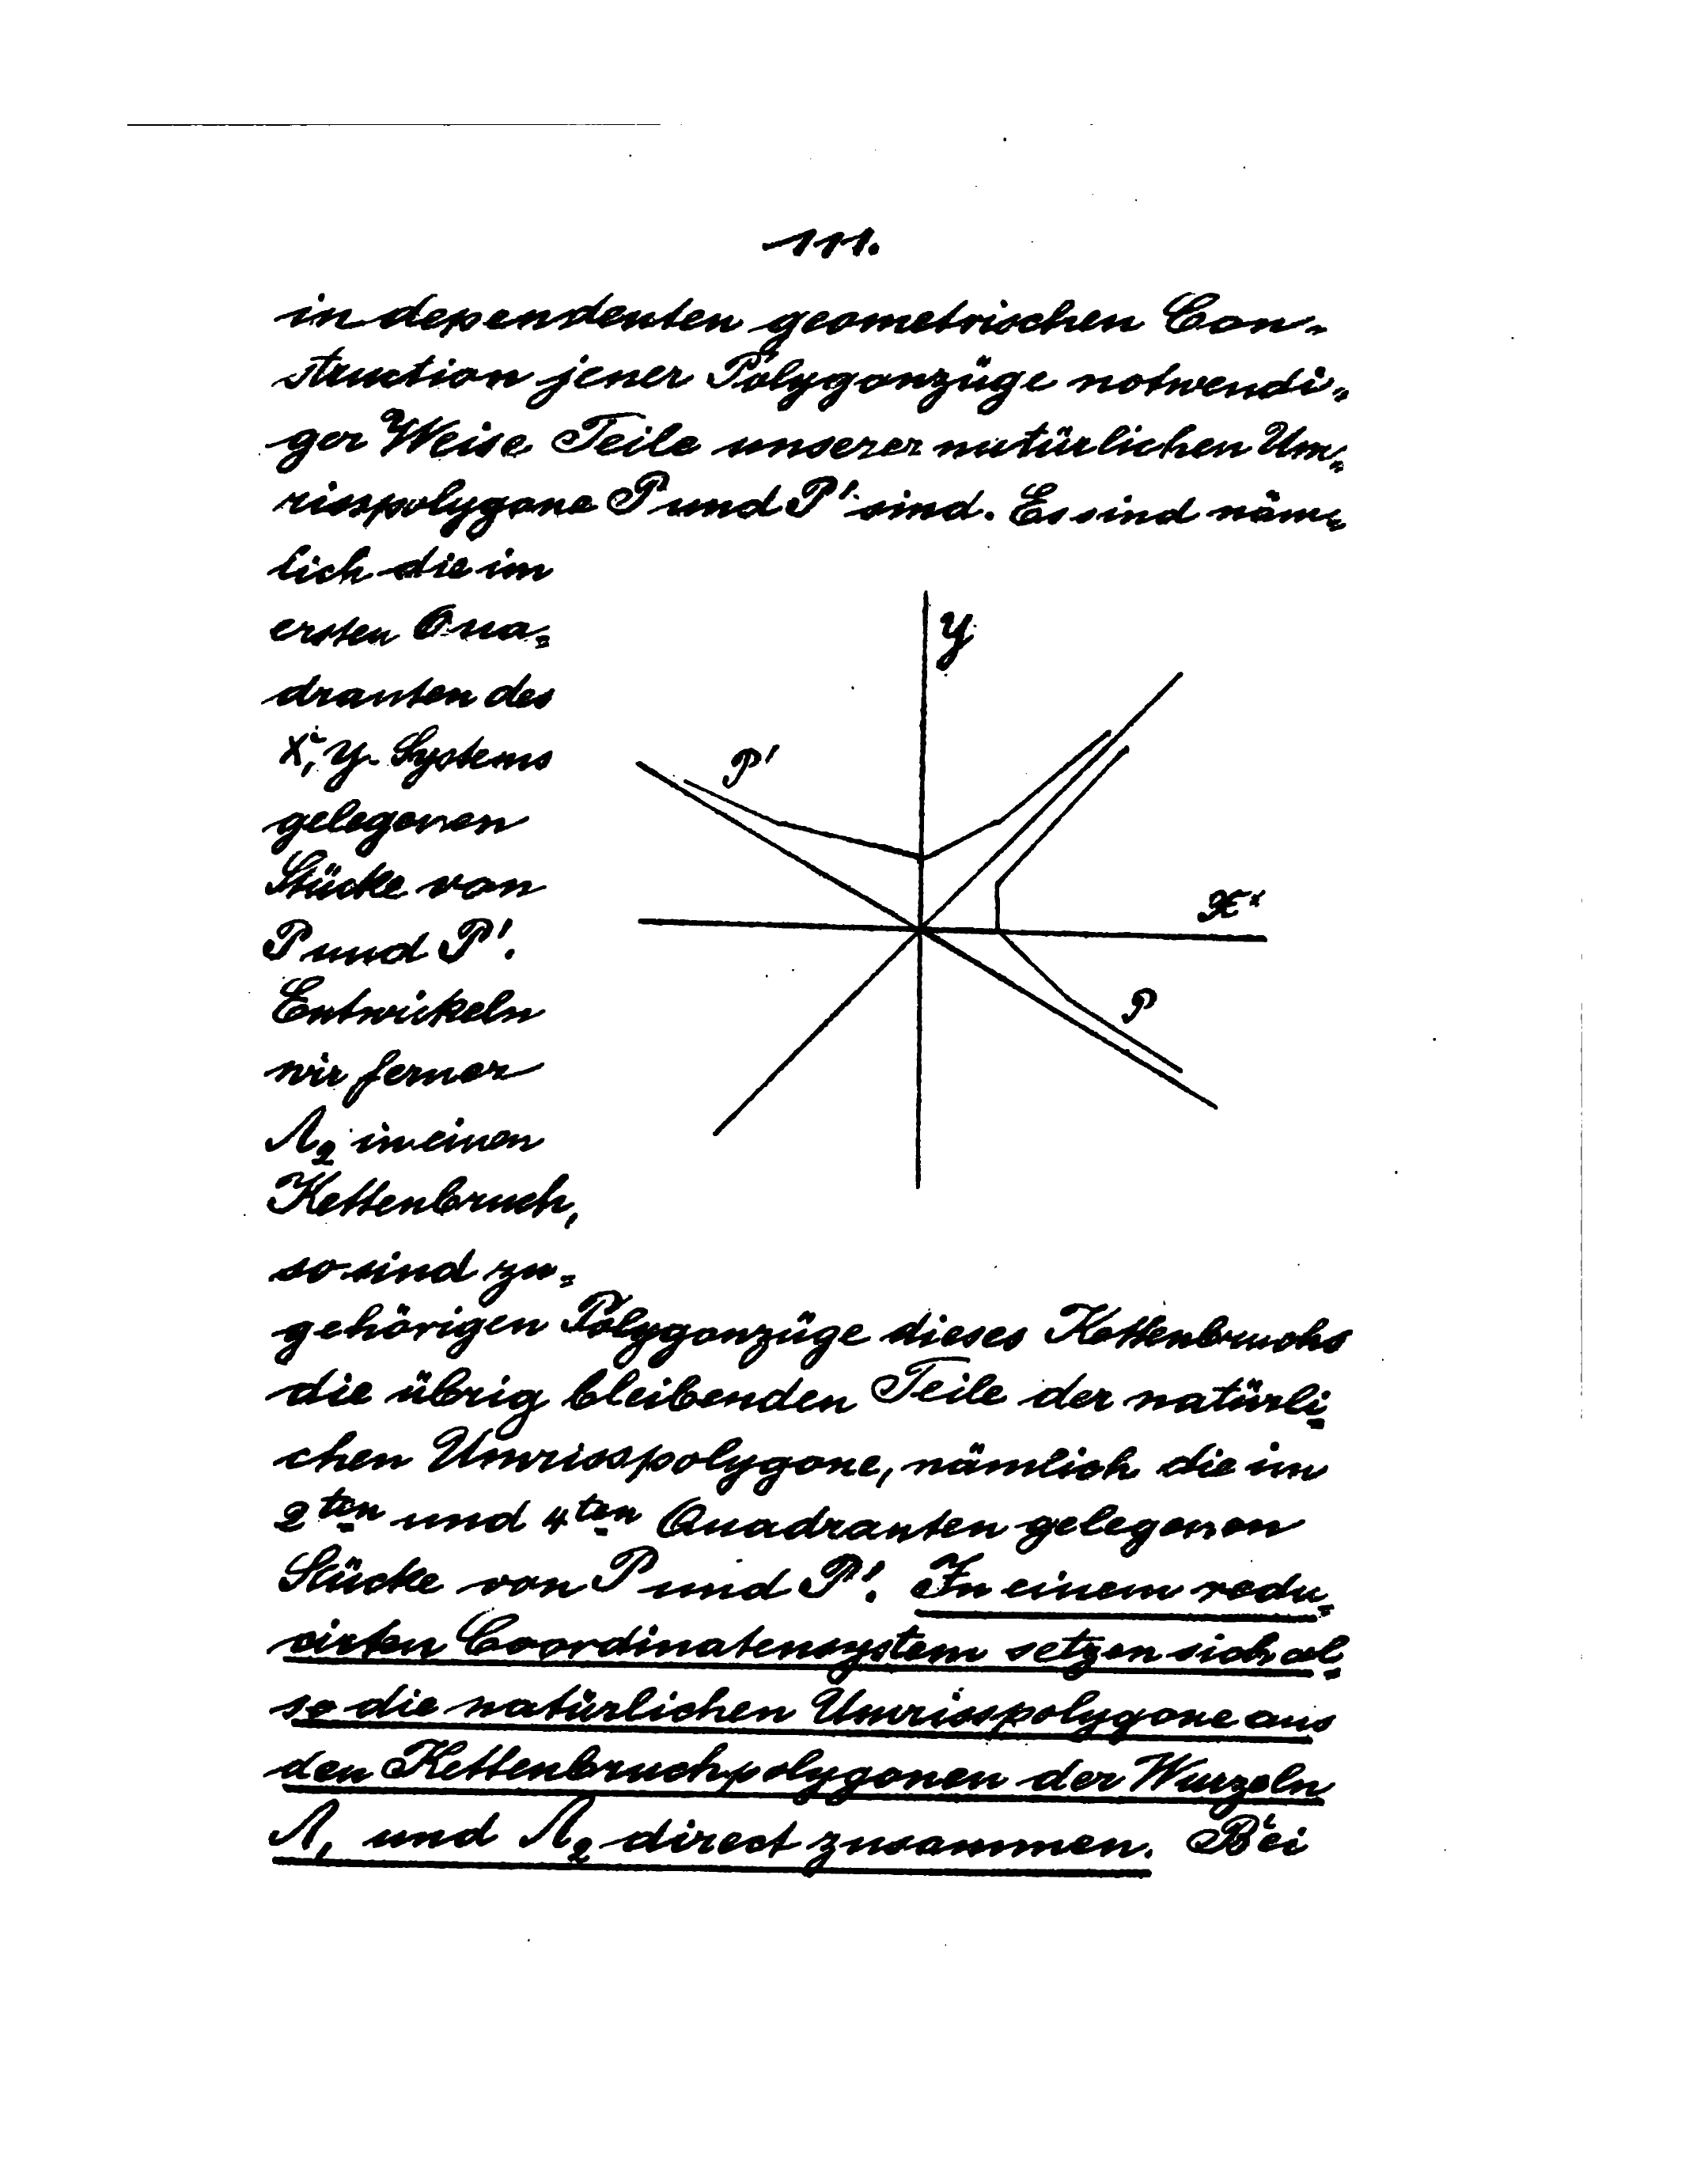 111.
independenten geometrischen Con-
struction jener Polygonzüge notwendi-
ger Weise Teile unserer natürlichen Um-
risspolygone P und P' sind. Es sind näm-
lich die im
ersten Qua-
dranten des
X, Y- Systems
gelegenen
Stücke von
P und P'.
Entwickeln
wir ferner
Λ₂ in einen
Kettenbruch,
so sind zu-
gehörigen Polygonzüge dieses Kettenbruchs
die übrig bleibenden Teile der natürli-
chen Umrisspolygone, nämlich die im
2ten und 4ten Quadranten gelegenen
Stücke von P und P'. In einem redu-
cirten Coordinatensystem setzen sich al-
so die natürlichen Umrisspolygone aus
den Kettenbruchpolygonen der Wurzeln
Λ₁ und Λ₂ direct zusammen. Bei
Y
P'
X
P